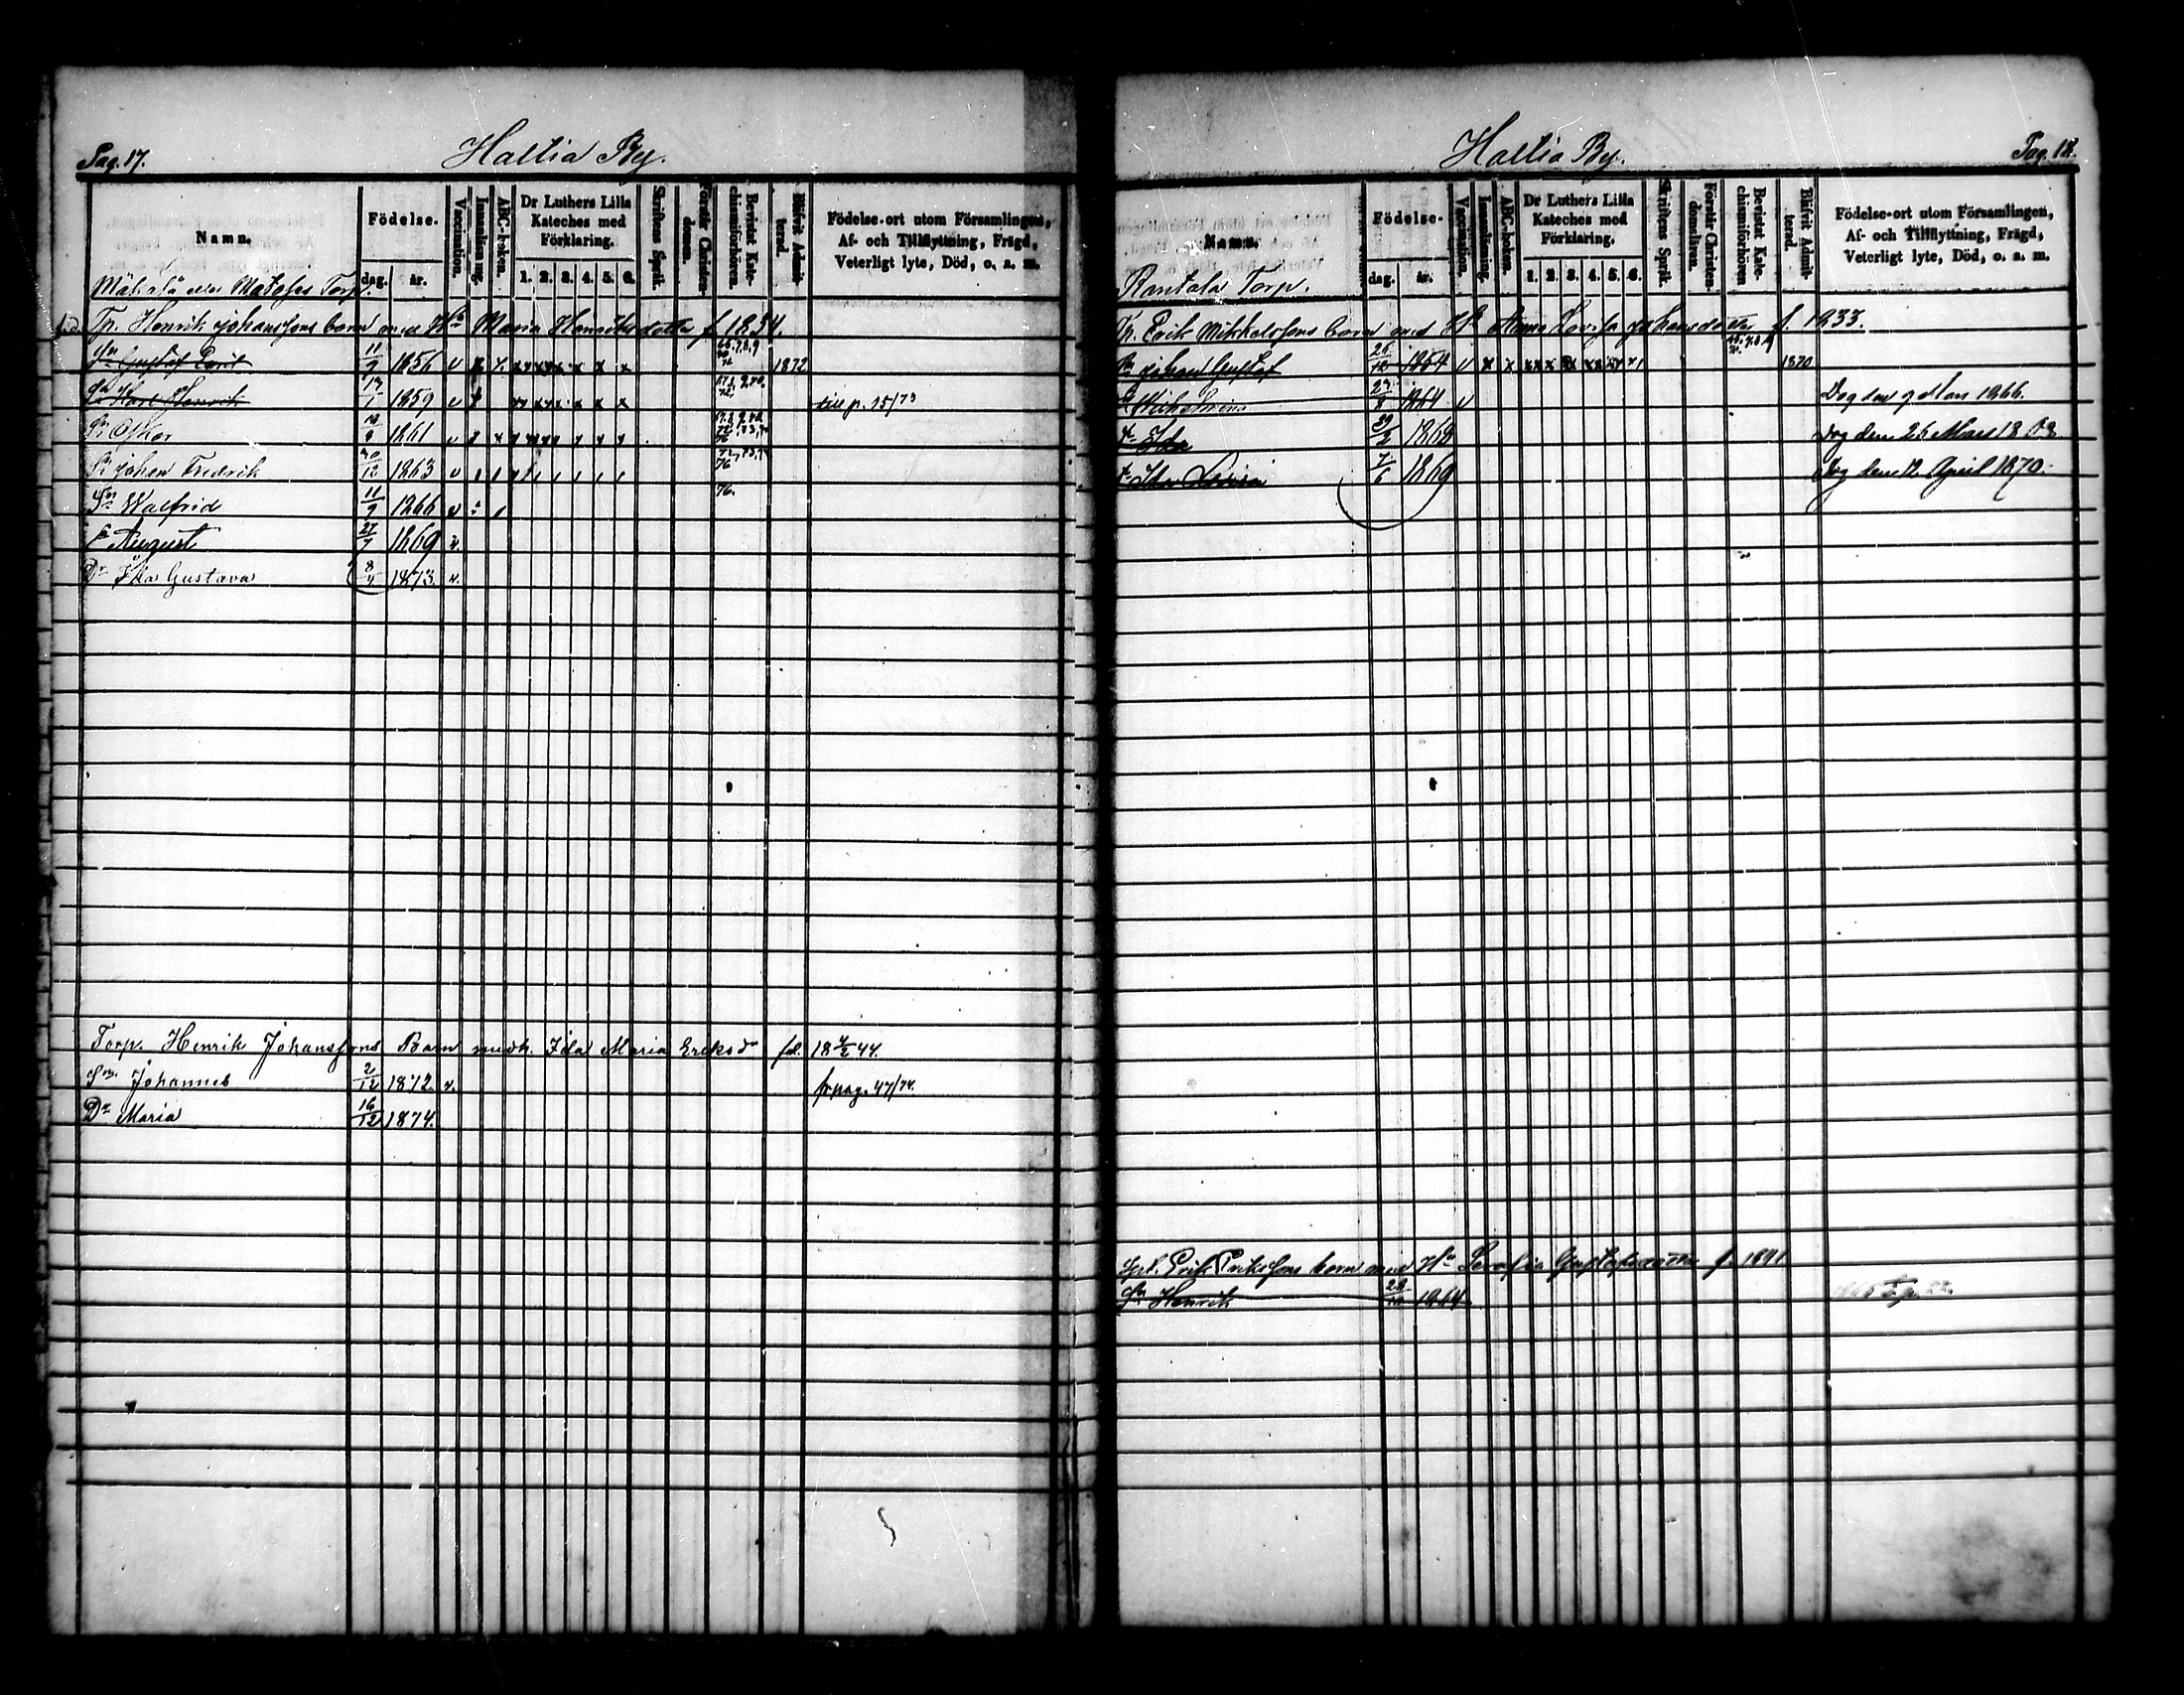 Pag. 17.
Haltia By.
Namn.
Födelse.
dag.
år.
Vaccination.
Innanläsning.
ABC-boken.
Dr Luthers Lilla
Kateches med
Förklaring.
1. 2. 3. 4. 5. 6.
Skriftens Språk.
Förstår Christen-
domen.
Bevistat Kate-
chismiförhören.
Blifvit Admit-
terad.
Födelse-ort utom Församlingen,
Af- och Tillflyttning, Frägd,
Veterligt lyte, Död, o. a. m.
Torp.
Tp. Henrik Johanssons barn med Hu Maria Henriksdotter f. 1834.
Sn Gustaf Emil 11/9 1856 v 1872
Sn Karl Henrik 1859 v till p. 15/73
Sn Oskar 1861 v
Sn Johan Fredrik 1863 v
Sn Walfrid 11/9 1866 v 76.
Sn August 27/7 1869 v.
Dr Ida Gustava 8/11 1873. v.
Torp. Henrik Johanssons Barn med h. Ida Maria Eriksd fd. 18 4/2 44.
Sn Johannes 2/12 1872. v. fr pag. 47/74.
Dr Maria 16/12 1874.
Haltia By.
Pag. 18.
Namn.
Födelse.
dag.
år.
Vaccination.
Innanläsning.
ABC-boken.
Dr Luthers Lilla
Kateches med
Förklaring.
1. 2. 3. 4. 5. 6.
Skriftens Språk.
Förstår Christen-
domsläran.
Bevistat Kate-
chismiförhören
Blifvit Admit-
terad.
Födelse-ort utom Församlingen,
Af- och Tillflyttning, Frägd,
Veterligt lyte, Död, o. a. m.
Rantala Torp.
Tp. Erik Mikkelssons barn med Hu Anna Lovisa Johansdotter f. 1833.
Sn Johan Gustaf 1854 v 1870
Dr Wilhelmina 1864 v Dog den 9 Mars 1866.
Dr Ida 1868 Dog dem 26 Mars 1868
Dr Ida Lovisa 7/6 1869 Dog dem 12 April 1870.
Erik Erikssons barn med Hu Serafia Gustafsdotter f. 1841
Sn Henrik 1864